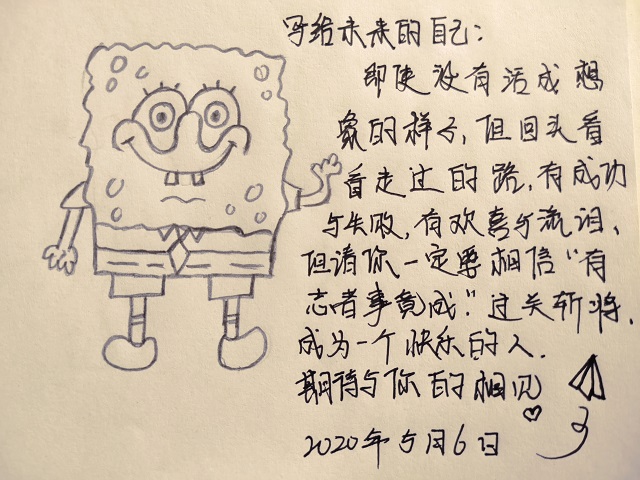 写给未来的自己:
即使没有活成想
象的样子,但回头看
看走过的路,有成功
与失败,有欢喜与流泪、
但请你一定要相信“有
志者事竟成.”过关斩将,
成为一个快乐的人.
期待与你的相见
2020年5月6日